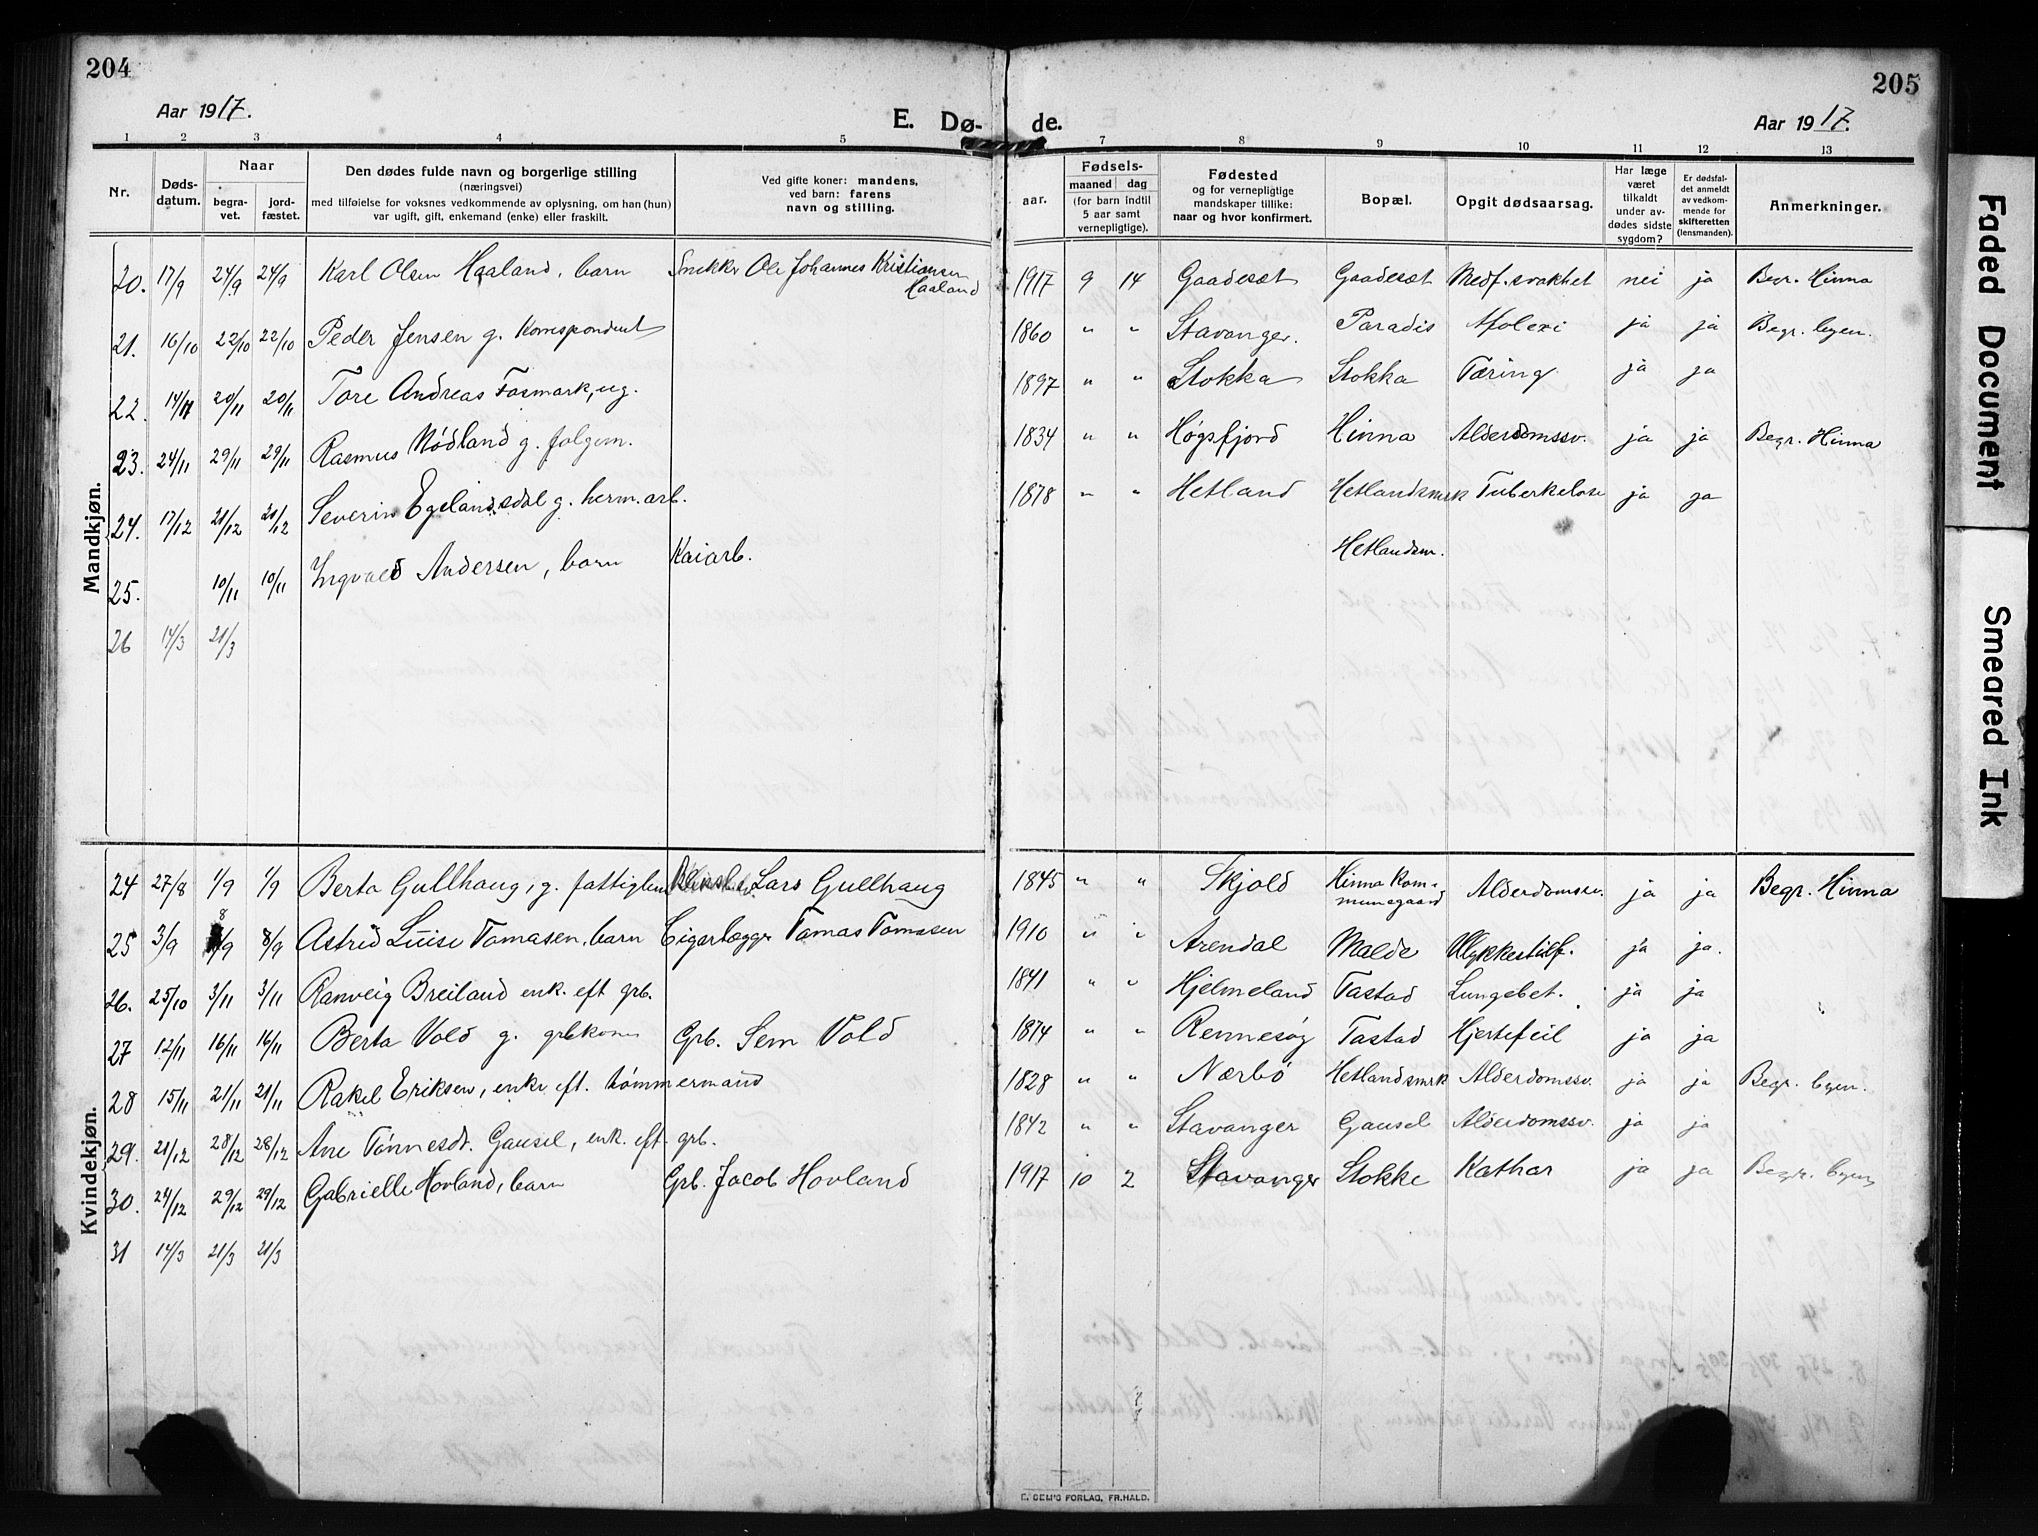 204
205
Aar 1917.
E. Dø-
de.
Aar 1917.
1 2 3 4 5 7 8 9 10 11 12 13
Nr.
Døds-
datum.
Naar
begra-
vet.
jord-
fæstet.
Den dødes fulde navn og borgerlige stilling
(næringsvei)
med tilføielse for voksnes vedkommende av oplysning, om han (hun)
var ugift, gift, enkemand (enke) eller fraskilt.
Ved gifte koner: mandens,
ved barn: farens
navn og stilling.
aar.
Fødsels-
maaned dag
(for barn indtil
5 aar samt
vernepligtige).
Fødested
og for vernepligtige
mandskaper tillike:
naar og hvor konfirmert.
Bopæl.
Opgit dødsaarsag.
Har læge
været
tilkaldt
under av-
dødes sidste
sygdom?
Er dødsfal-
det anmeldt
av vedkom-
mende for
skifteretten
(lensmanden).
Anmerkninger.
Mandkjøn.
20. 17/9 24/9 24/9 Karl Olsen Haaland, barn Snekkr Ole Johannes Kristiansen
Haaland
1917 9 14 Gaadesæt Gaadesæt Medf. svakhet nei ja Begr. Hinna
21. 16/10 22/10 22/10 Peder Jensen g. Korrespondent
1860 " " Stavanger. Paradis Apolexi ja ja Begr. byen.
22. 14/11 20/11 20/11 Tore Andreas Fosmark, ug.
1897 " " Stokka Stokka Tæring ja ja
23. 24/11 29/11 29/11 Rasmus Nödland g. folgem.
1834 " " Høgsfjord Hinna Alderdomssv. ja ja Begr. Hinna
24. 17/12 21/12 21/12 Severin Egelandsdal g. herm.arb.
1878 " " Hetland Hetlandsmrk Tuberkelose ja ja
25. 10/11 10/11 Ingvald Andersen, barn Kaiarb.
Hetlandsm.
26 14/3 21/3
Kvindekjøn.
24 27/8 1/9 1/9 Berta Gullhaug, g. fattiglem Lars Gullhaug
1845 " " Skjold Hinna Kom-
munegaard Alderdomssv. ja ja Begr. Hinna
25 3/9 8/9 8/9 Astrid Luise Tomasen, barn Cigarlægger Tomas Tomasen
1910 " " Arendal Malde Ulykkestilf. ja ja.
26. 25/10 3/11 3/11 Ranveig Breiland enk. eft grb.
1841 " " Hjelmeland Tastad Lungebet. ja ja
27 12/11 16/11 16/11 Berta Vold g. grbkone Grb. Sem Vold
1874 " " Rennesøy Tastad Hjertefeil ja ja
28 15/11 21/11 21/11 Rakel Eriksen, enke eft. tømmermand
1828 " " Nærbö Hetlandsmrk Alderdomssv. ja ja Begr. byen.
29. 21/12 28/12 28/12 Ane Tønnesdt. Gausel, enk. eft. grb.
1842 " " Stavanger Gausel Alderdomssv. ja ja
30. 24/12 29/12 29/12 Gabrielle Hovland, barn Grb. Jacob Hovland
1917 10 2 Stavanger Stokke Kathar ja ja Begr. byen
31 14/3 21/3 21/3
E. SEM'S FORLAG, FR.HALD.
Faded Document
Smeared Ink